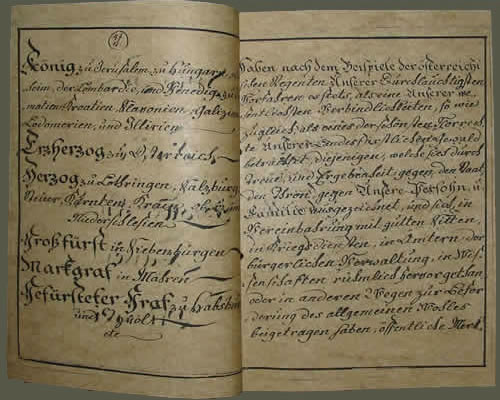 König zu Jerusalem, zu Hungarn,
heim, der Lombardie, und Venedig, zu
matien, Kroatien, Slavonien, Galizien
Lodomerien, und Illirien
Erzherzog zu Österreich
Herzog zu Lothringen, Salzburg
Steier, Kärnten, Krain,
Niederschlesien
Großfürst in Siebenbürgen
Markgraf in Mähren
Gefürsteter Graf zu Habsburg
und Tyroll
etc
Haben nach dem Beispiele der österreichi
schen Regenten Unserer Durchlauchtigsten
Vorfahren es stets als eine Unserer we
sentlichsten Verbindlichkeiten, so wie
zugleich als eines der schönsten Vorrech
te Unserer Landesfürstlichen Gewald
betrachtet, diejenigen, welche sich durch
Treue, und Ergebenheit, gegen, den Staat,
den Thron, gegen Unsere Persohn, u.
Familie ausgezeichnet, und sich, in
Vereinbahrung mit gutten Sitten,
in Kriegsdiensten, in Ämtern, der
bürgerlichen Verwaltung, in Wis
senschaften rühmlich hervorgethan,
oder in anderen Wegen zur Beför
derung des allgemeinen Wohles
beigetragen haben, öffentliche Merk